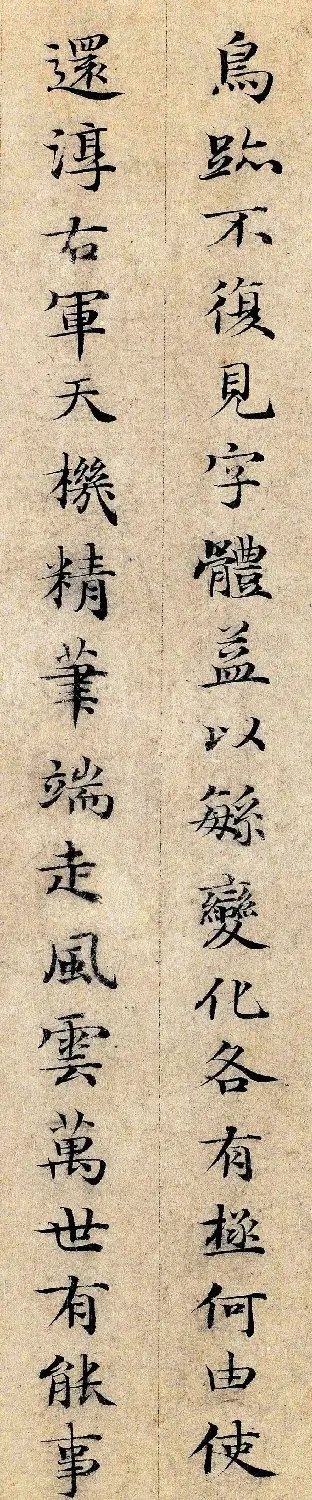 鳥跡不復見字體益以緐變化各有極何由使
還淳右軍天機精筆端走風雲萬世有能事